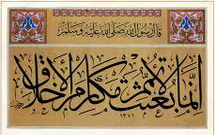 قال رسول الله صلى الله عليه وسلم
إنما بعثت لأتمم مكارم الأخلاق